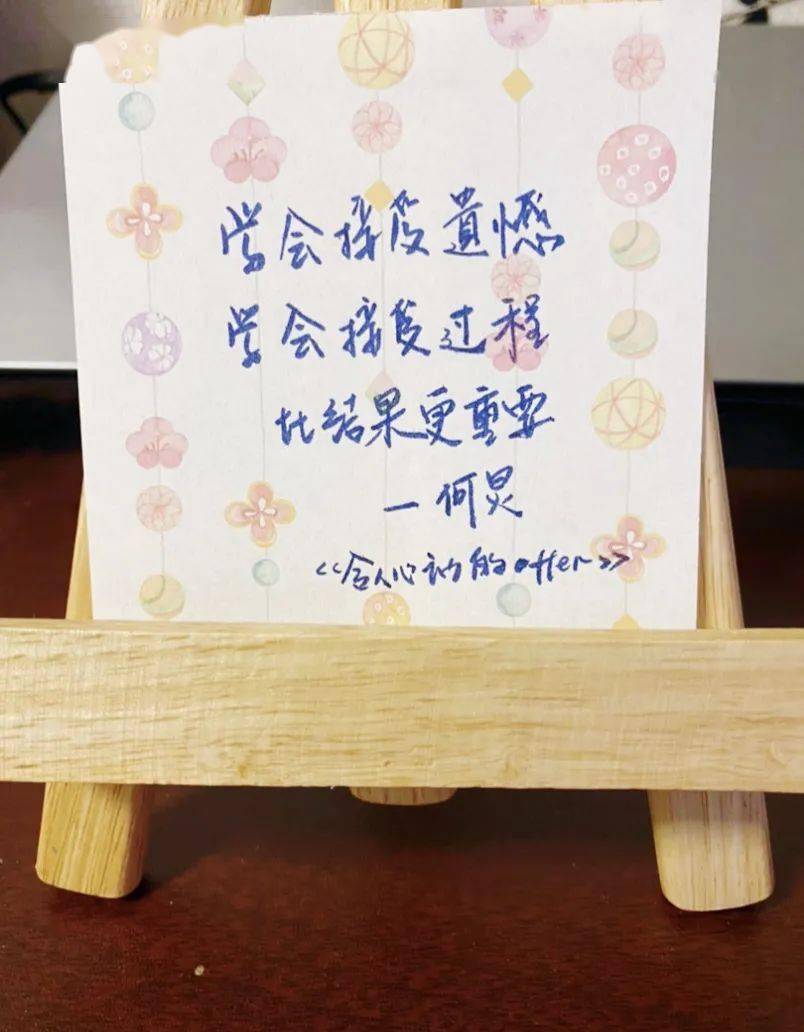 学会接受遺憾
学会接受过程
比结果更重要
—何炅
<<令人心动的offer>>